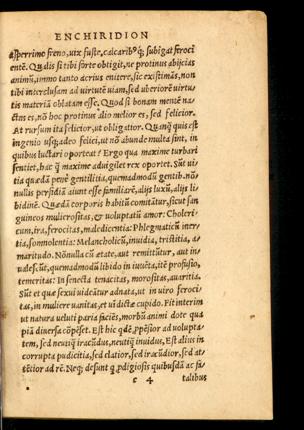 ENCHIRIDION
asperrimo freno, uix fuste, calcaribꝰqꝫ subigat feroci
entē. Qualis si tibi forte obtigit, ne protinus abijcias
animū, immo tanto acrius enitere, sic existimās, non
tibi interclusam ad uirtutē uiam, sed uberiorē uirtu⸗
tis materiā oblatam esse. Quod si bonam mentē na⸗
ctus es, nō hoc protinus alio melior es, sed felicior.
At rursum ita felicior, ut obligatior. Quanqꝫ quis est
ingenio usqꝫadeo felici, ut nō abunde multa sint, in
quibus luctari oporteat? Ergo qua maxime turbari
senties, hac qꝫ maxime aduigilet rex oportet. Sūt ui⸗
tia quædā penè gentilitia, quemadmodū gentib. nō⸗
nullis perfidiā aiunt esse familiarē, alijs luxū, alijs li⸗
bidinē. Quædā corporis habitū comitātur, sicut san
guineos mulierositas, et uoluptatū amor: Choleri⸗
cum, ira, ferocitas, maledicentia: Phlegmaticū iner⸗
tia, somnolentia: Melancholicū, inuidia, tristitia, a⸗
maritudo. Nōnulla cū etate, aut remittūtur, aut in⸗
ualescūt, quemadmodū libido in iuuēta, itē profusio,
temeritas: In senecta tenacitas, morositas, auaritia.
Sūt et quæ sexui uideātur adnata, ut in uiro feroci⸗
tas, in muliere uanitas, et uīdictæ cupido. Fit interim
ut natura ueluti paria faciēs, morbū animi dote qua
piā diuersa cōpēset. Est hic qdē, ꝓpēsior ad uolupta⸗
tem, sed neutiqꝫ iracūdus, neutiqꝫ inuidus, Est alius in
corrupta pudicitia, sed elatior, sed iracūdior, sed at⸗
tētior ad rē. Neqꝫ desunt qꝫ ꝓdigiosis quibusdā ac fa⸗
c 4 talibus